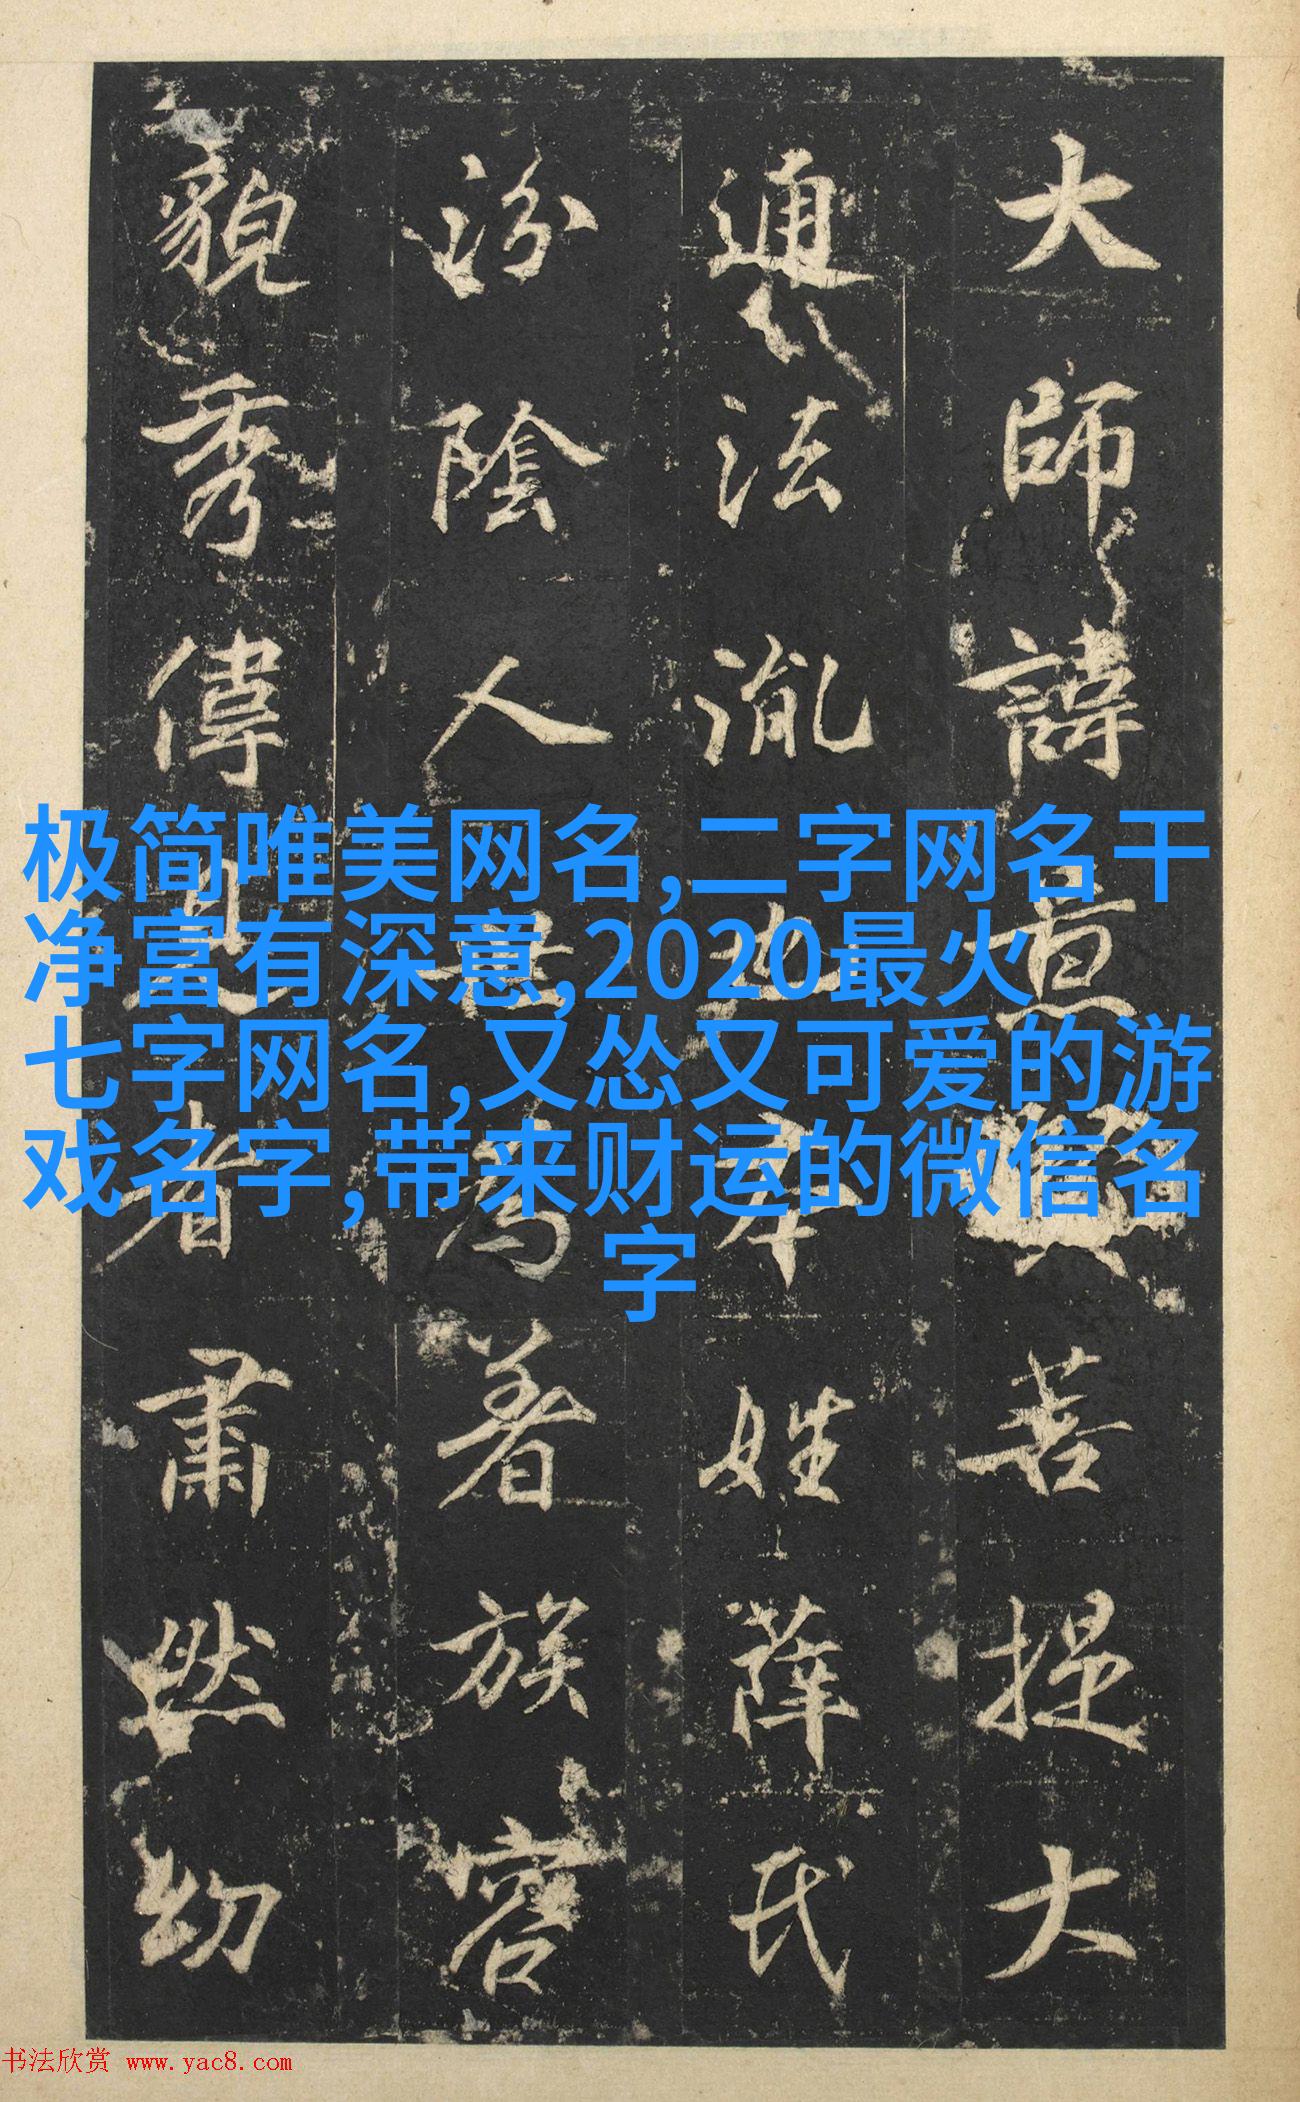 大師諱景菩提大
通法胤也本姓薛氏
汾陰人世為著族容
貌秀偉見者肅然幼
极简唯美网名,二字网名干
净富有深意,2020最火
七字网名,又怂又可爱的游
戏名字,带来财运的微信名
字
书法欣赏 www.yac8.com